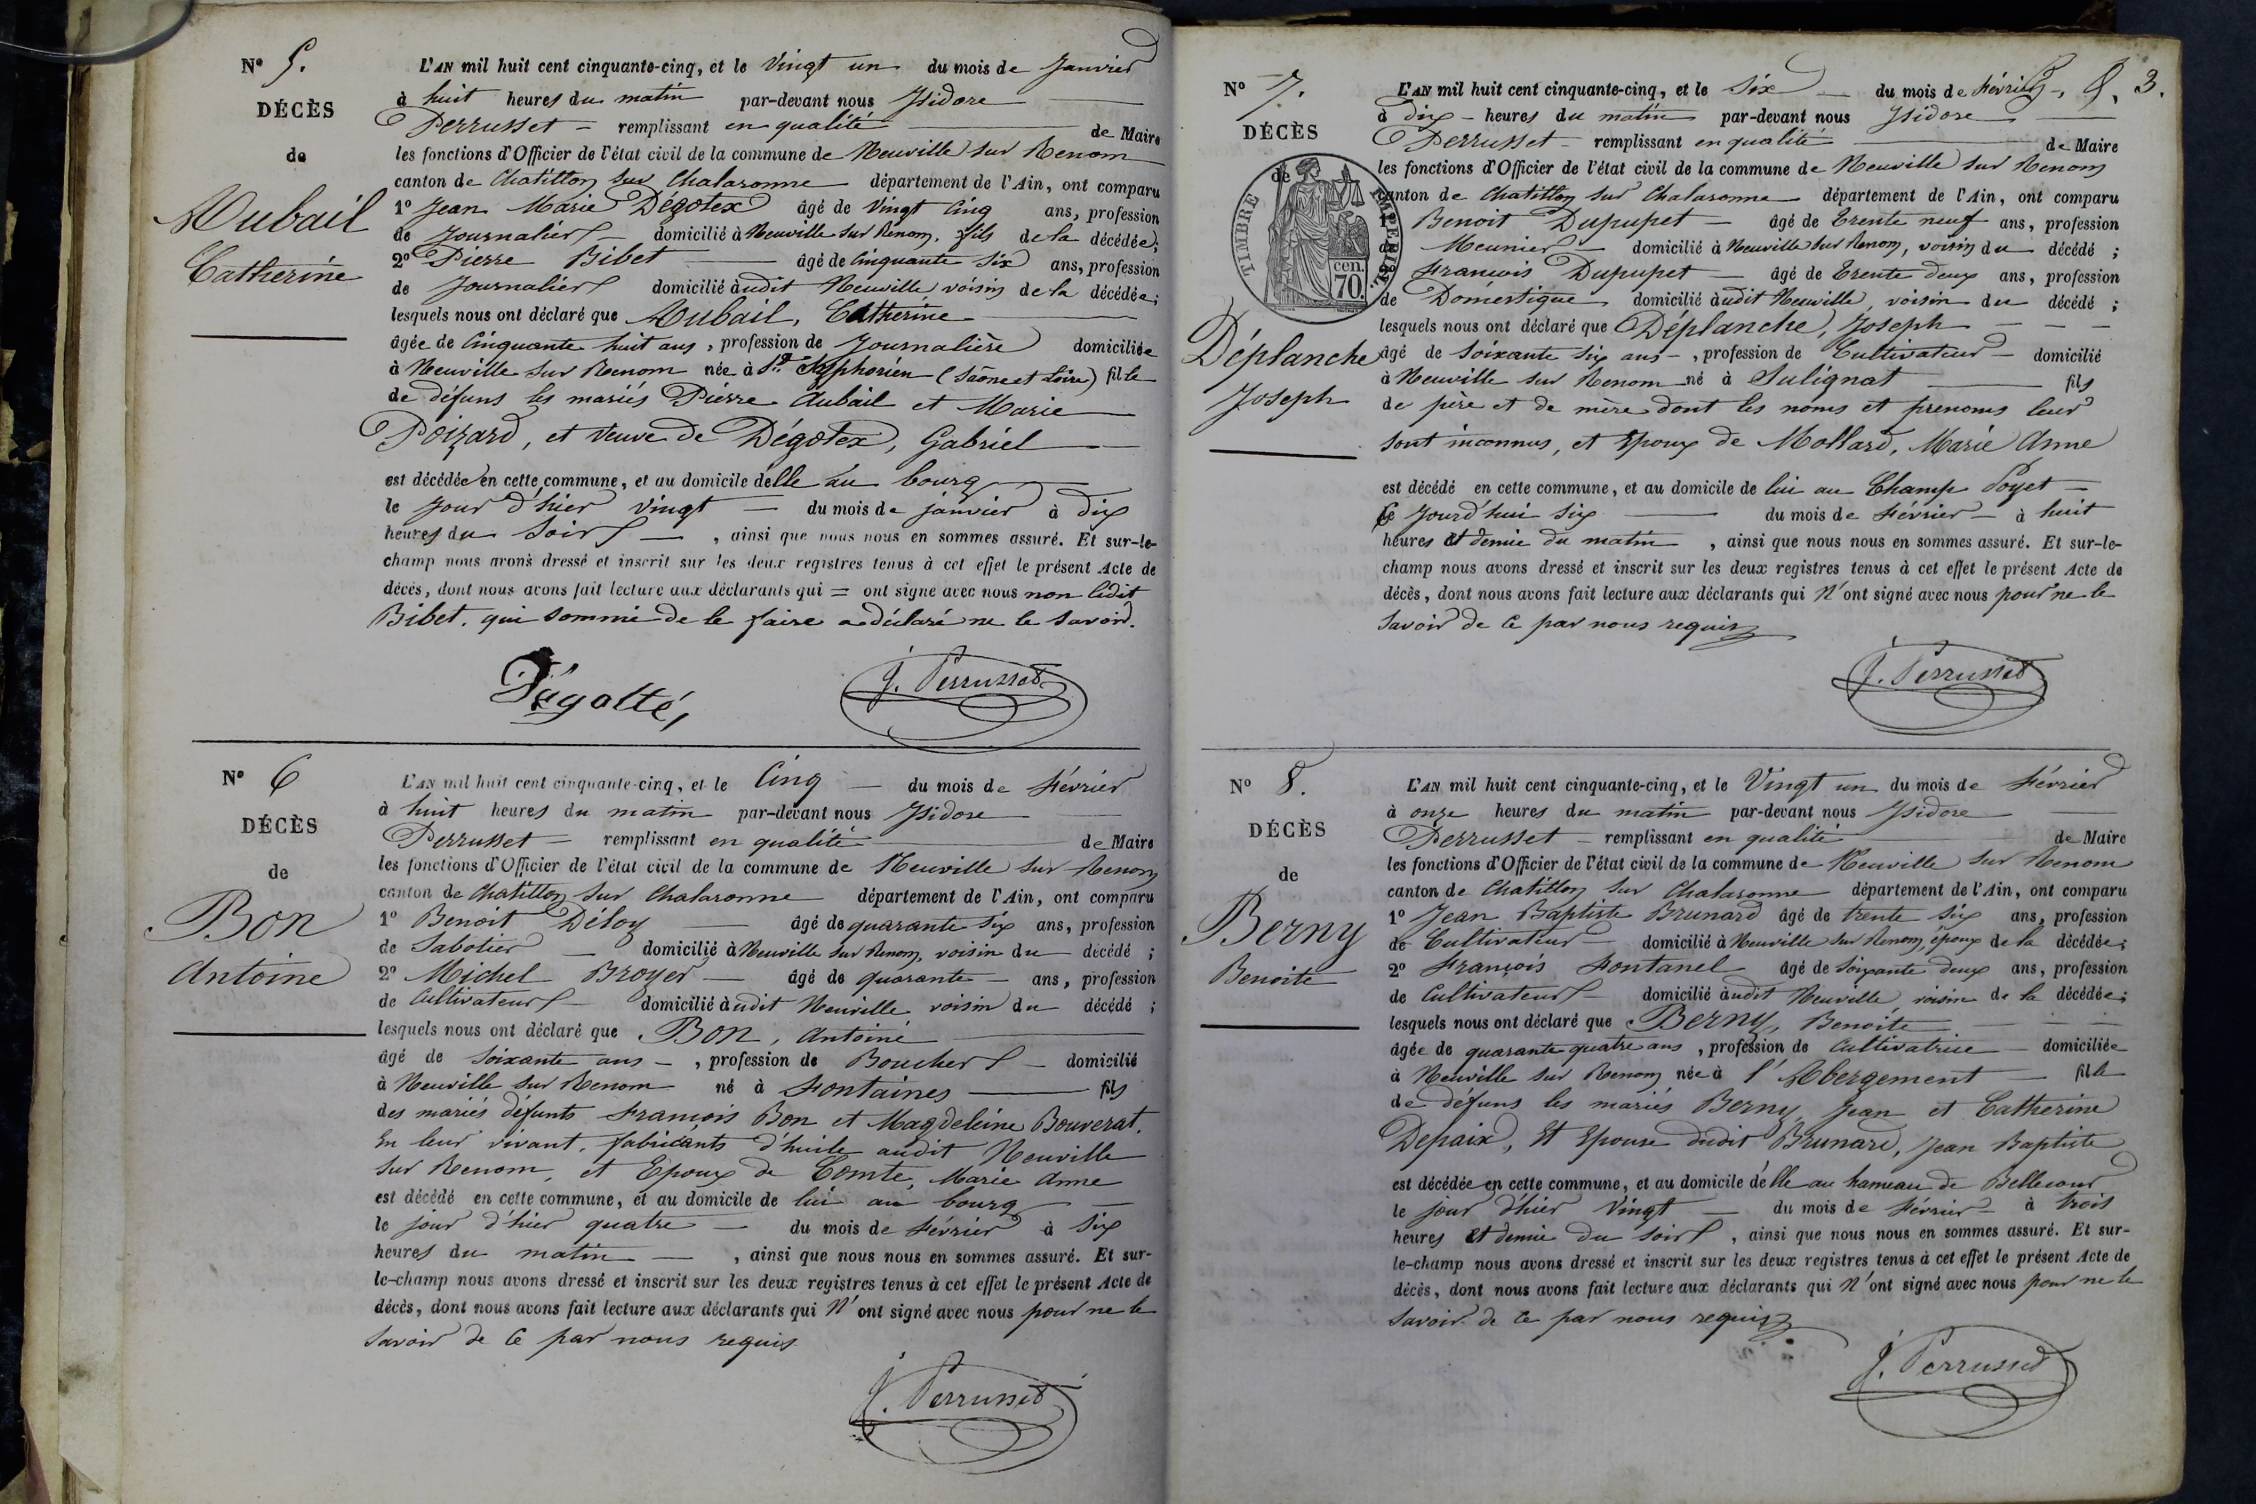 N° 5.
DÉCÈS
de
Aubail
Catherine
L'AN mil huit cent cinquante-cinq, et le Vingt un du mois de Janvier
à huit heures du matin par-devant nous Isidore
Perrusset remplissant en qualité de Maire
les fonctions d'Officier de l'état civil de la commune de Neuville sur Renom
canton de Chatillon sur Chalaronne département de l'Ain, ont comparu
1° Jean Marie Dégotex âgé de Vingt Cinq ans, profession
de Journalier domicilié à Neuville sur Renom, fils de la décédée;
2° Pierre Bibet âgé de Cinquante Six ans, profession
de Journalier domicilié audit Neuville voisin de la décédée;
lesquels nous ont déclaré que Aubail, Catherine
âgée de Cinquante huit ans, profession de Journalière domiciliée
à Neuville sur Renom née à St Symphorien (Saône et Loire) fille
de défuns les mariés Pierre Aubail et Marie
Poizard, et veuve de Dégotex, Gabriel
est décédée en cette commune, et au domicile d'elle au bourg
le jour d'hier vingt du mois de janvier à dix
heures du Soir, ainsi que nous nous en sommes assuré. Et sur-le-
champ nous avons dressé et inscrit sur les deux registres tenus à cet effet le présent Acte de
décès, dont nous avons fait lecture aux déclarants qui = ont signé avec nous non ledit
Bibet. qui sommé de le faire a déclaré ne le savoir.
Dégotté, J. Perrusset
N° 6
DÉCÈS
de
Bon
Antoine
L'AN mil huit cent cinquante-cinq, et le Cinq du mois de Février
à huit heures du matin par-devant nous Isidore
Perrusset remplissant en qualité de Maire
les fonctions d'Officier de l'état civil de la commune de Neuville sur Renom
canton de Chatillon sur Chalaronne département de l'Ain, ont comparu
1° Benoit Déloy âgé de quarante six ans, profession
de Sabotier domicilié à Neuville sur Renom, voisin du décédé;
2° Michel Broyer âgé de quarante ans, profession
de Cultivateur domicilié audit Neuville voisin du décédé;
lesquels nous ont déclaré que Bon, Antoine
âgé de soixante ans, profession de Boucher domicilié
à Neuville sur Renom né à Fontaines fils
des mariés défunts François Bon et Magdeleine Bouverat.
En leur vivant, fabricants d'huile audit Neuville
sur Renom, et Epoux de Comte, Marie Anne
est décédé en cette commune, et au domicile de lui au bourg
le jour d'hier quatre du mois de Février à Six
heures du matin, ainsi que nous nous en sommes assuré. Et sur-
le-champ nous avons dressé et inscrit sur les deux registres tenus à cet effet le présent Acte de
décès, dont nous avons fait lecture aux déclarants qui N'ont signé avec nous pour ne le
savoir de ce par nous requis
J. Perrusset
3.
N° 7.
DÉCÈS
de
TIMBRE IMPÉRIAL
70 cen.
Déplanche
Joseph
L'AN mil huit cent cinquante-cinq, et le Six du mois de Février
à dix heures du matin par-devant nous Isidore
Perrusset remplissant en qualité de Maire
les fonctions d'Officier de l'état civil de la commune de Neuville sur Renom
canton de Chatillon sur Chalaronne département de l'Ain, ont comparu
Benoit Dupupet âgé de Trente neuf ans, profession
de Meunier domicilié à Neuville sur Renom, voisin du décédé;
François Dupupet âgé de Trente deux ans, profession
de Domestique domicilié audit Neuville, voisin du décédé;
lesquels nous ont déclaré que Déplanche, Joseph
âgé de soixante six ans, profession de Cultivateur domicilié
à Neuville sur Renom né à Sulignat fils
de père et de mère dont les noms et prenoms leur
sont inconnus, et Epoux de Mollard, Marie Anne
est décédé en cette commune, et au domicile de lui au Champ Poyet
Ce Jourd'hui six du mois de Février à huit
heures et demie du matin, ainsi que nous nous en sommes assuré. Et sur-le-
champ nous avons dressé et inscrit sur les deux registres tenus à cet effet le présent Acte de
décès, dont nous avons fait lecture aux déclarants qui N'ont signé avec nous pour ne le
savoir de ce par nous requis
J. Perrusset
N° 8.
DÉCÈS
de
Berny
Benoite
L'AN mil huit cent cinquante-cinq, et le Vingt un du mois de Février
à onze heures du matin par-devant nous Isidore
Perrusset remplissant en qualité de Maire
les fonctions d'Officier de l'état civil de la commune de Neuville sur Renom
canton de Chatillon sur Chalaronne département de l'Ain, ont comparu
1° Jean Baptiste Brunard âgé de trente six ans, profession
de Cultivateur domicilié à Neuville sur Renom, époux de la décédée;
2° François Fontanel âgé de soixante deux ans, profession
de Cultivateur domicilié audit Neuville, voisin de la décédée;
lesquels nous ont déclaré que Berny, Benoite
âgée de quarante quatre ans, profession de Cultivatrice domiciliée
à Neuville sur Renom née à l'Abergement fille
de défuns les mariés Berny Jean et Catherine
Depaix, Et Epouse dudit Brunard, Jean Baptiste
est décédée en cette commune, et au domicile d'elle au hameau de Bellecour
le jour d'hier Vingt du mois de Février à trois
heures et demie du soir, ainsi que nous nous en sommes assuré. Et sur-
le-champ nous avons dressé et inscrit sur les deux registres tenus à cet effet le présent Acte de
décès, dont nous avons fait lecture aux déclarants qui N'ont signé avec nous pour ne le
savoir de ce par nous requis
J. Perrusset